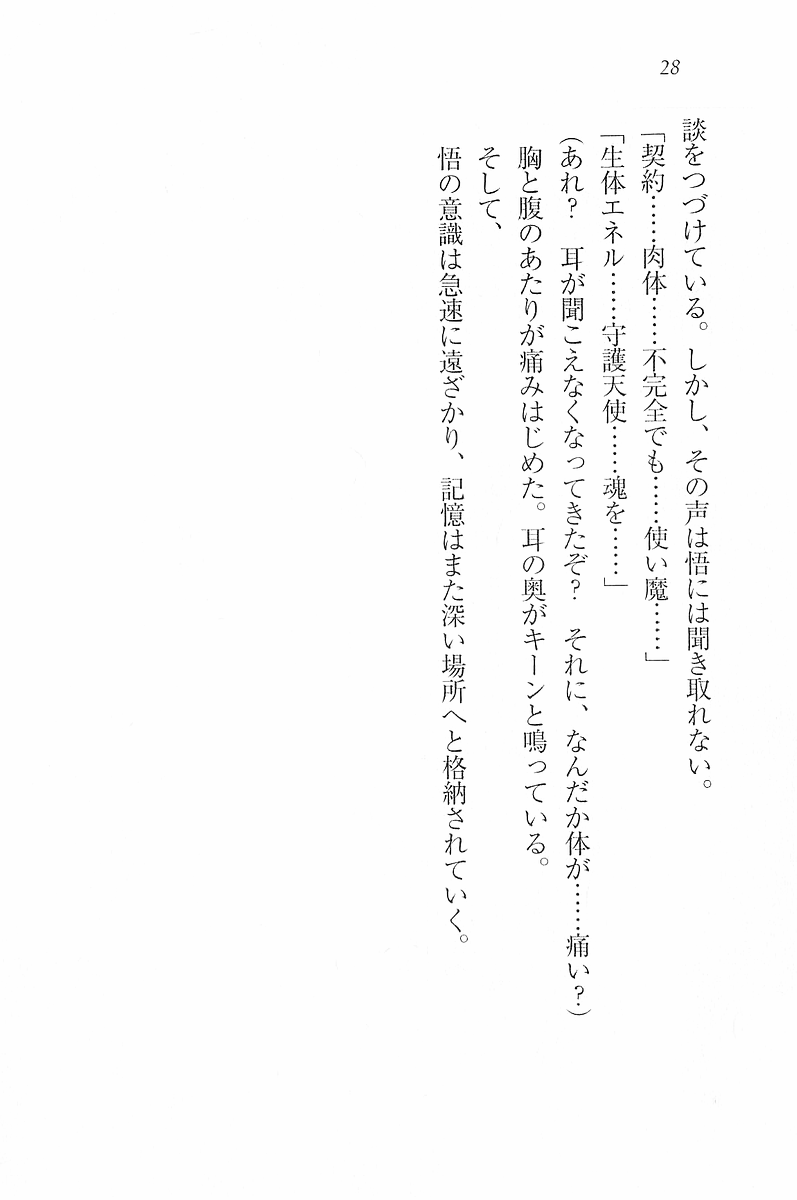 28
談をつづけている。しかし、その声は悟には聞き取れない。
「契約……肉体……不完全でも……使い魔……」
「生体エネル……守護天使……魂を……」
（あれ？　耳が聞こえなくなってきたぞ？　それに、なんだか体が……痛い？）
胸と腹のあたりが痛みはじめた。耳の奥がキーンと鳴っている。
そして、
悟の意識は急速に遠ざかり、記憶はまた深い場所へと格納されていく。